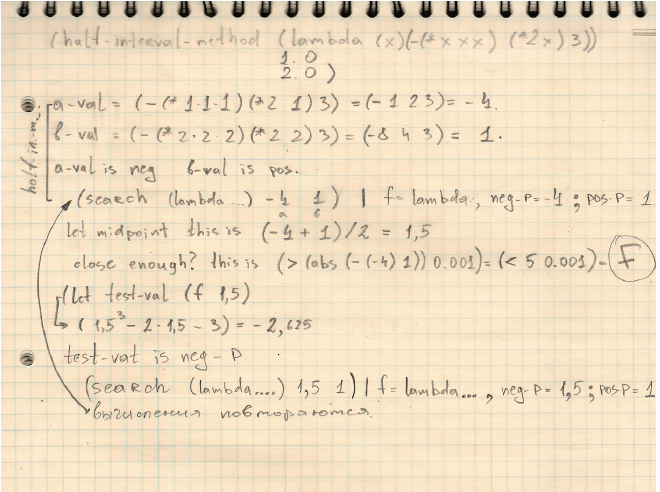 (half-interval-method (lambda (x)(-(*x x x) (*2x) 3))
1.0
2.0)
half.in-m.
a-val = (-(* 1·1·1)(*2 1) 3) = (- 1 2 3) = - 4.
b-val = (-(*2·2·2)(*2 2) 3) = (-8 4 3) = 1.
a-val is neg b-val is pos.
(search (lambda...) -4 1 ) | f = lambda., neg-p = -4 ; pos-p = 1
a b
let midpoint this is (-4 + 1)/2 = 1,5
close enough? this is (> (abs (-(-4) 1)) 0.001) = (< 5 0.001) = F
(let test-val (f 1,5)
(1,5³ - 2·1,5 - 3) = -2,625
test-val is neg-p
(search (lambda....) 1,5 1) | f = lambda..., neg-p = 1,5 ; pos-p = 1
вычисления повторяются.